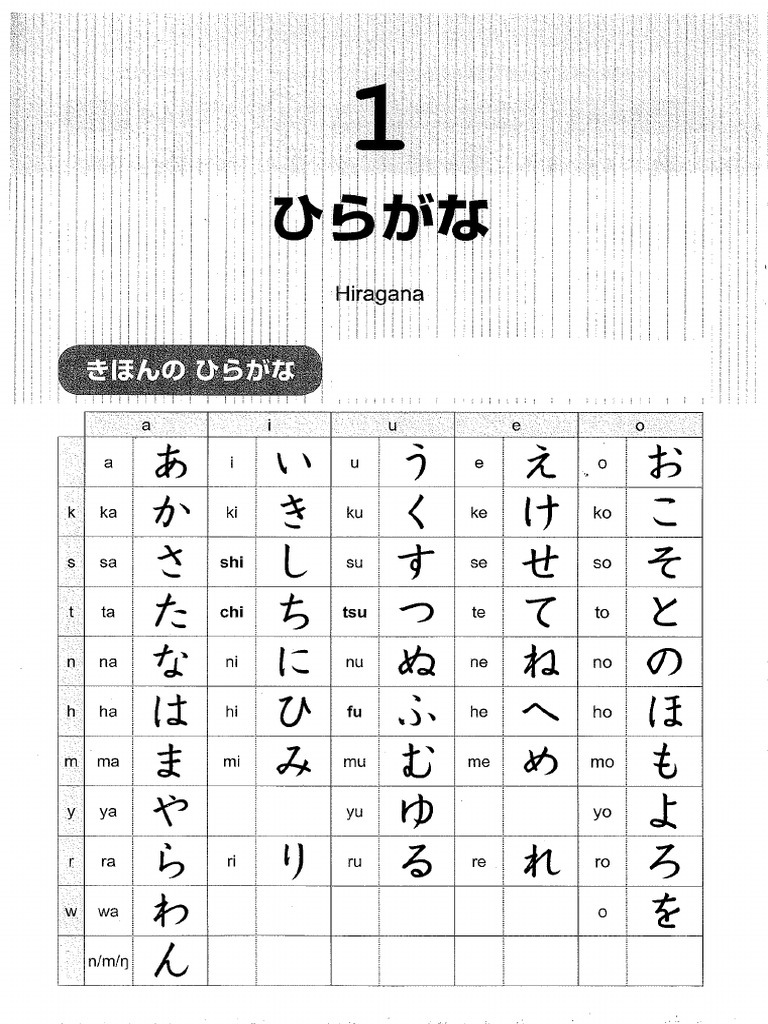 1
ひらがな
Hiragana
きほんの ひらがな
a i u e o
a あ i い u う e え o お
k ka か ki き ku く ke け ko こ
s sa さ shi し su す se せ so そ
t ta た chi ち tsu つ te て to と
n na な ni に nu ぬ ne ね no の
h ha は hi ひ fu ふ he へ ho ほ
m ma ま mi み mu む me め mo も
y ya や yu ゆ yo よ
r ra ら ri り ru る re れ ro ろ
w wa わ o を
n/m/ŋ ん